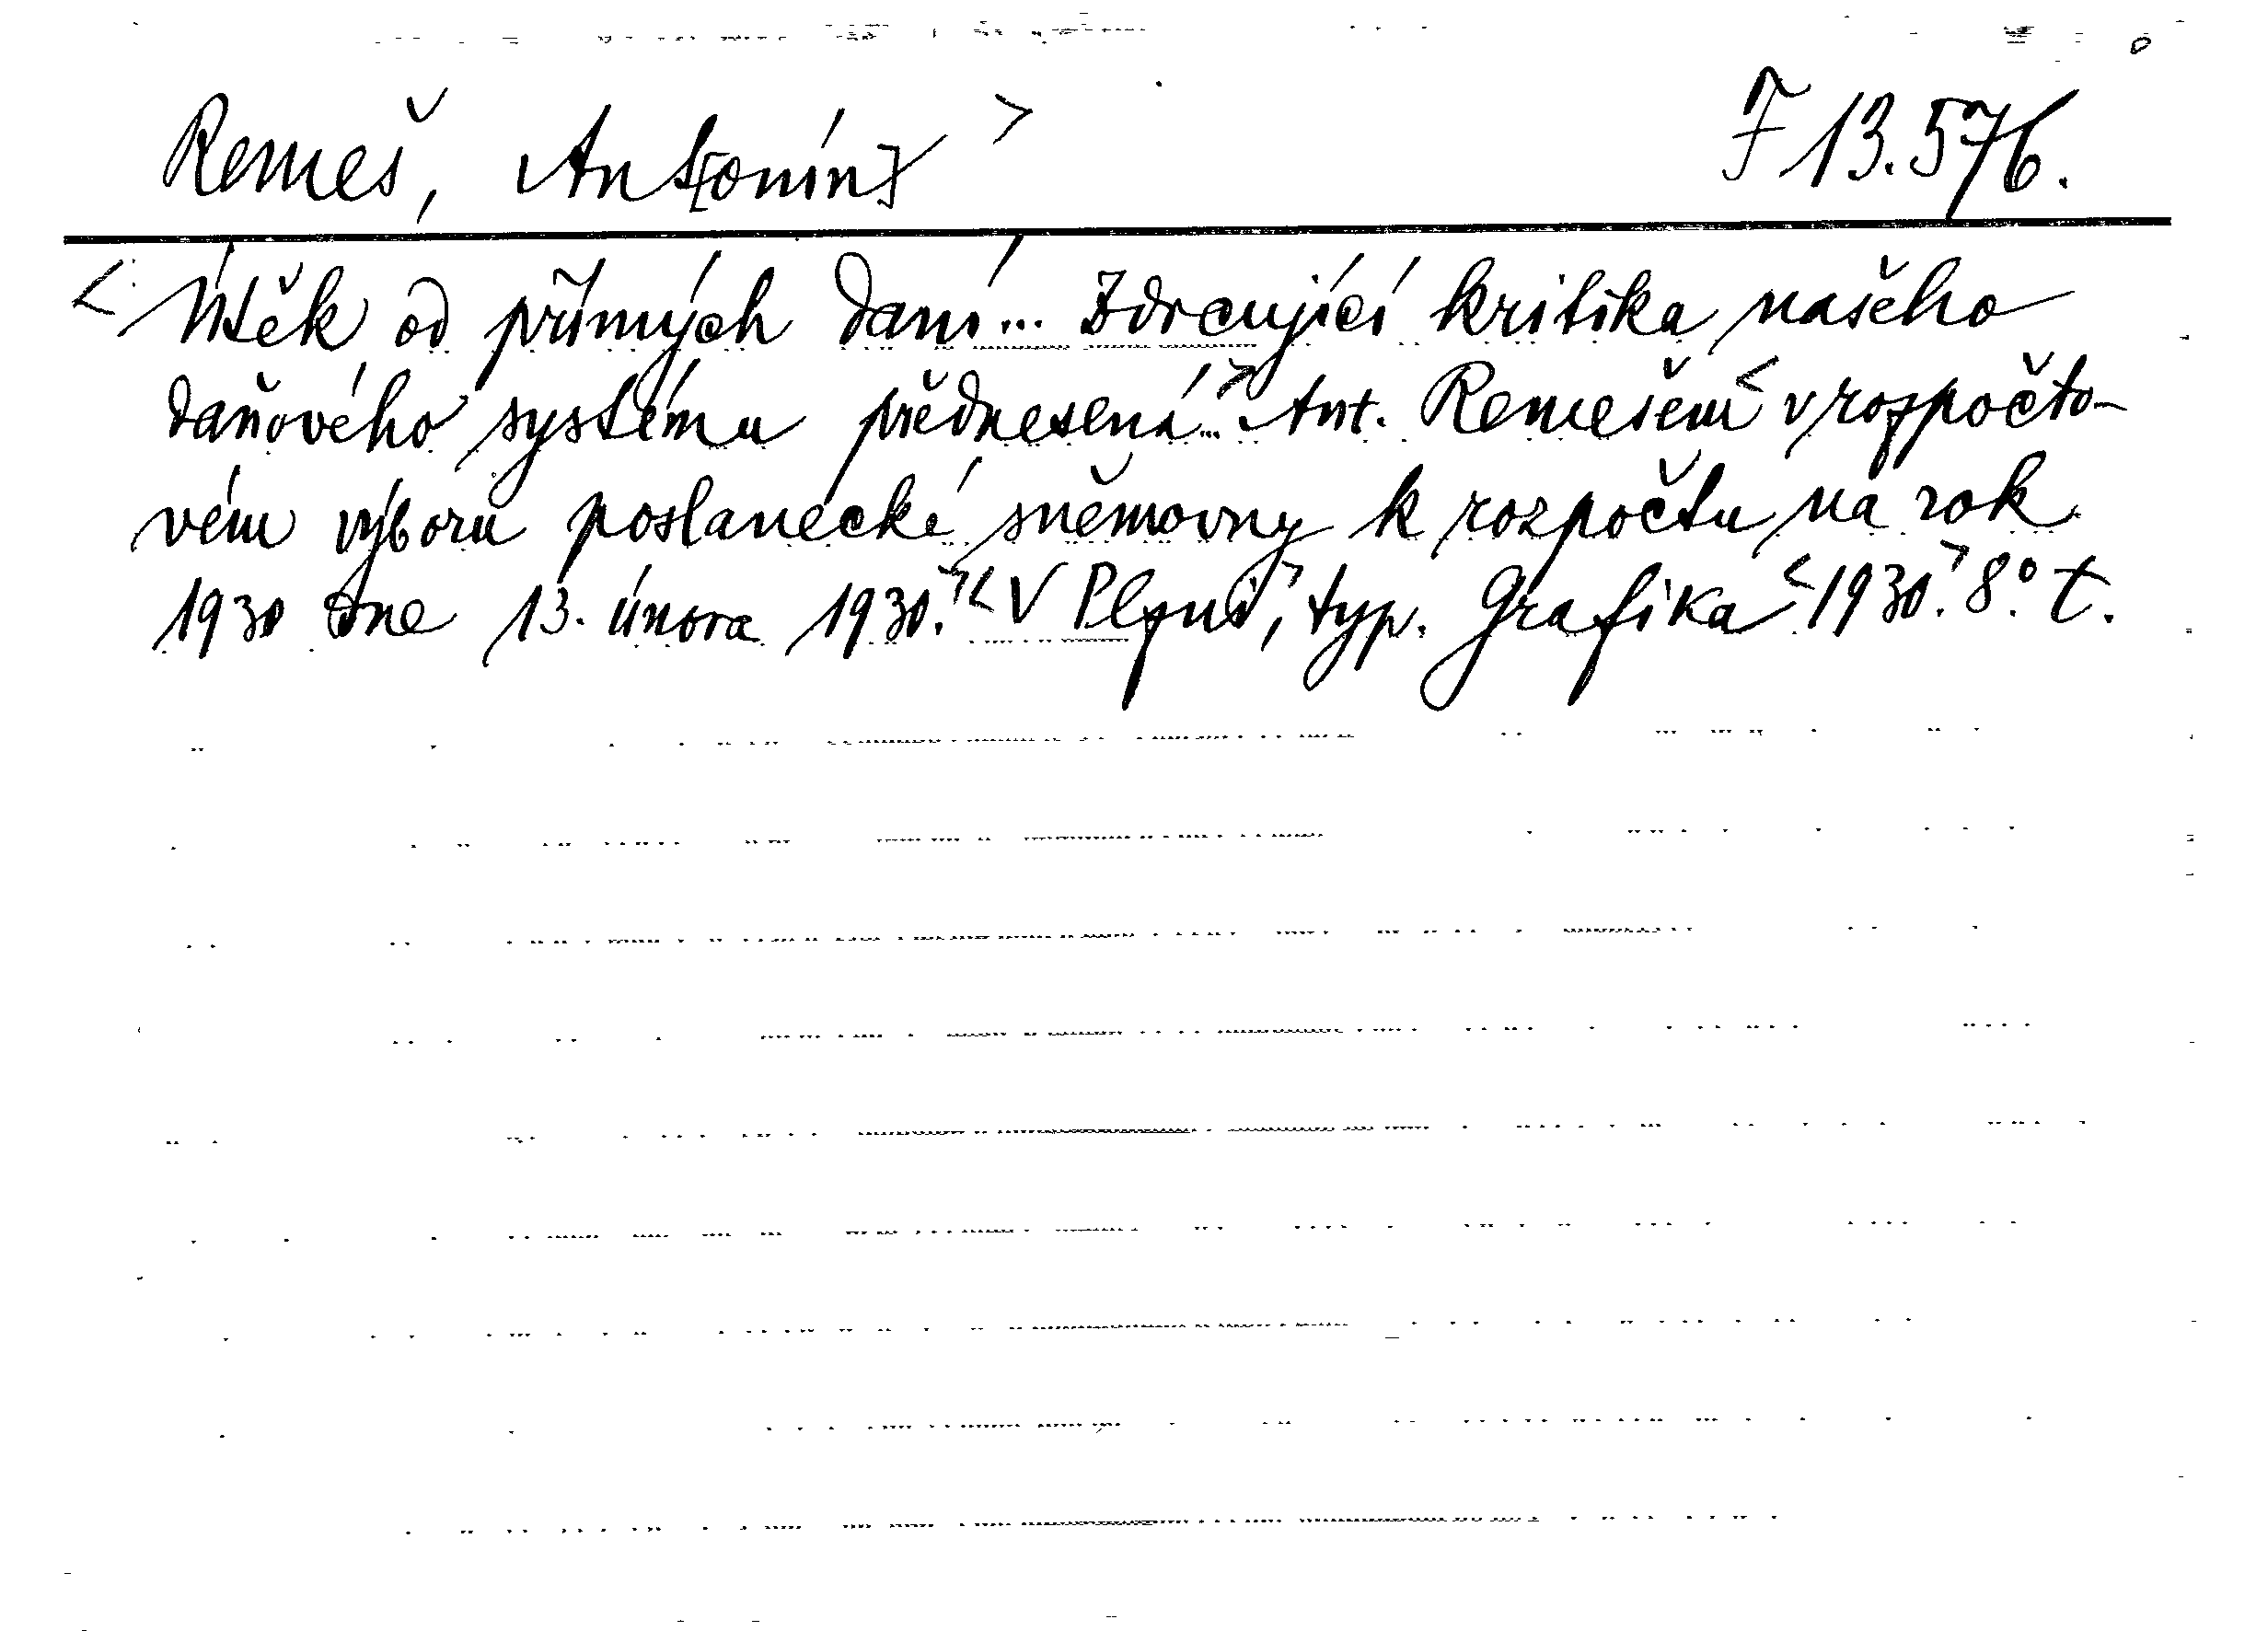 Remeš, Ant[onín] > F 13.576.
< Útěk od přímých daní... Zdrcující kritika našeho
daňového systému přednesená...> Ant. Remešem < v rozpočto-
vém výboru poslanecké sněmovny k rozpočtu na rok
1930 dne 13. února 1930.> < V Plzni, > typ. Grafika < 1930. > 8°. t.